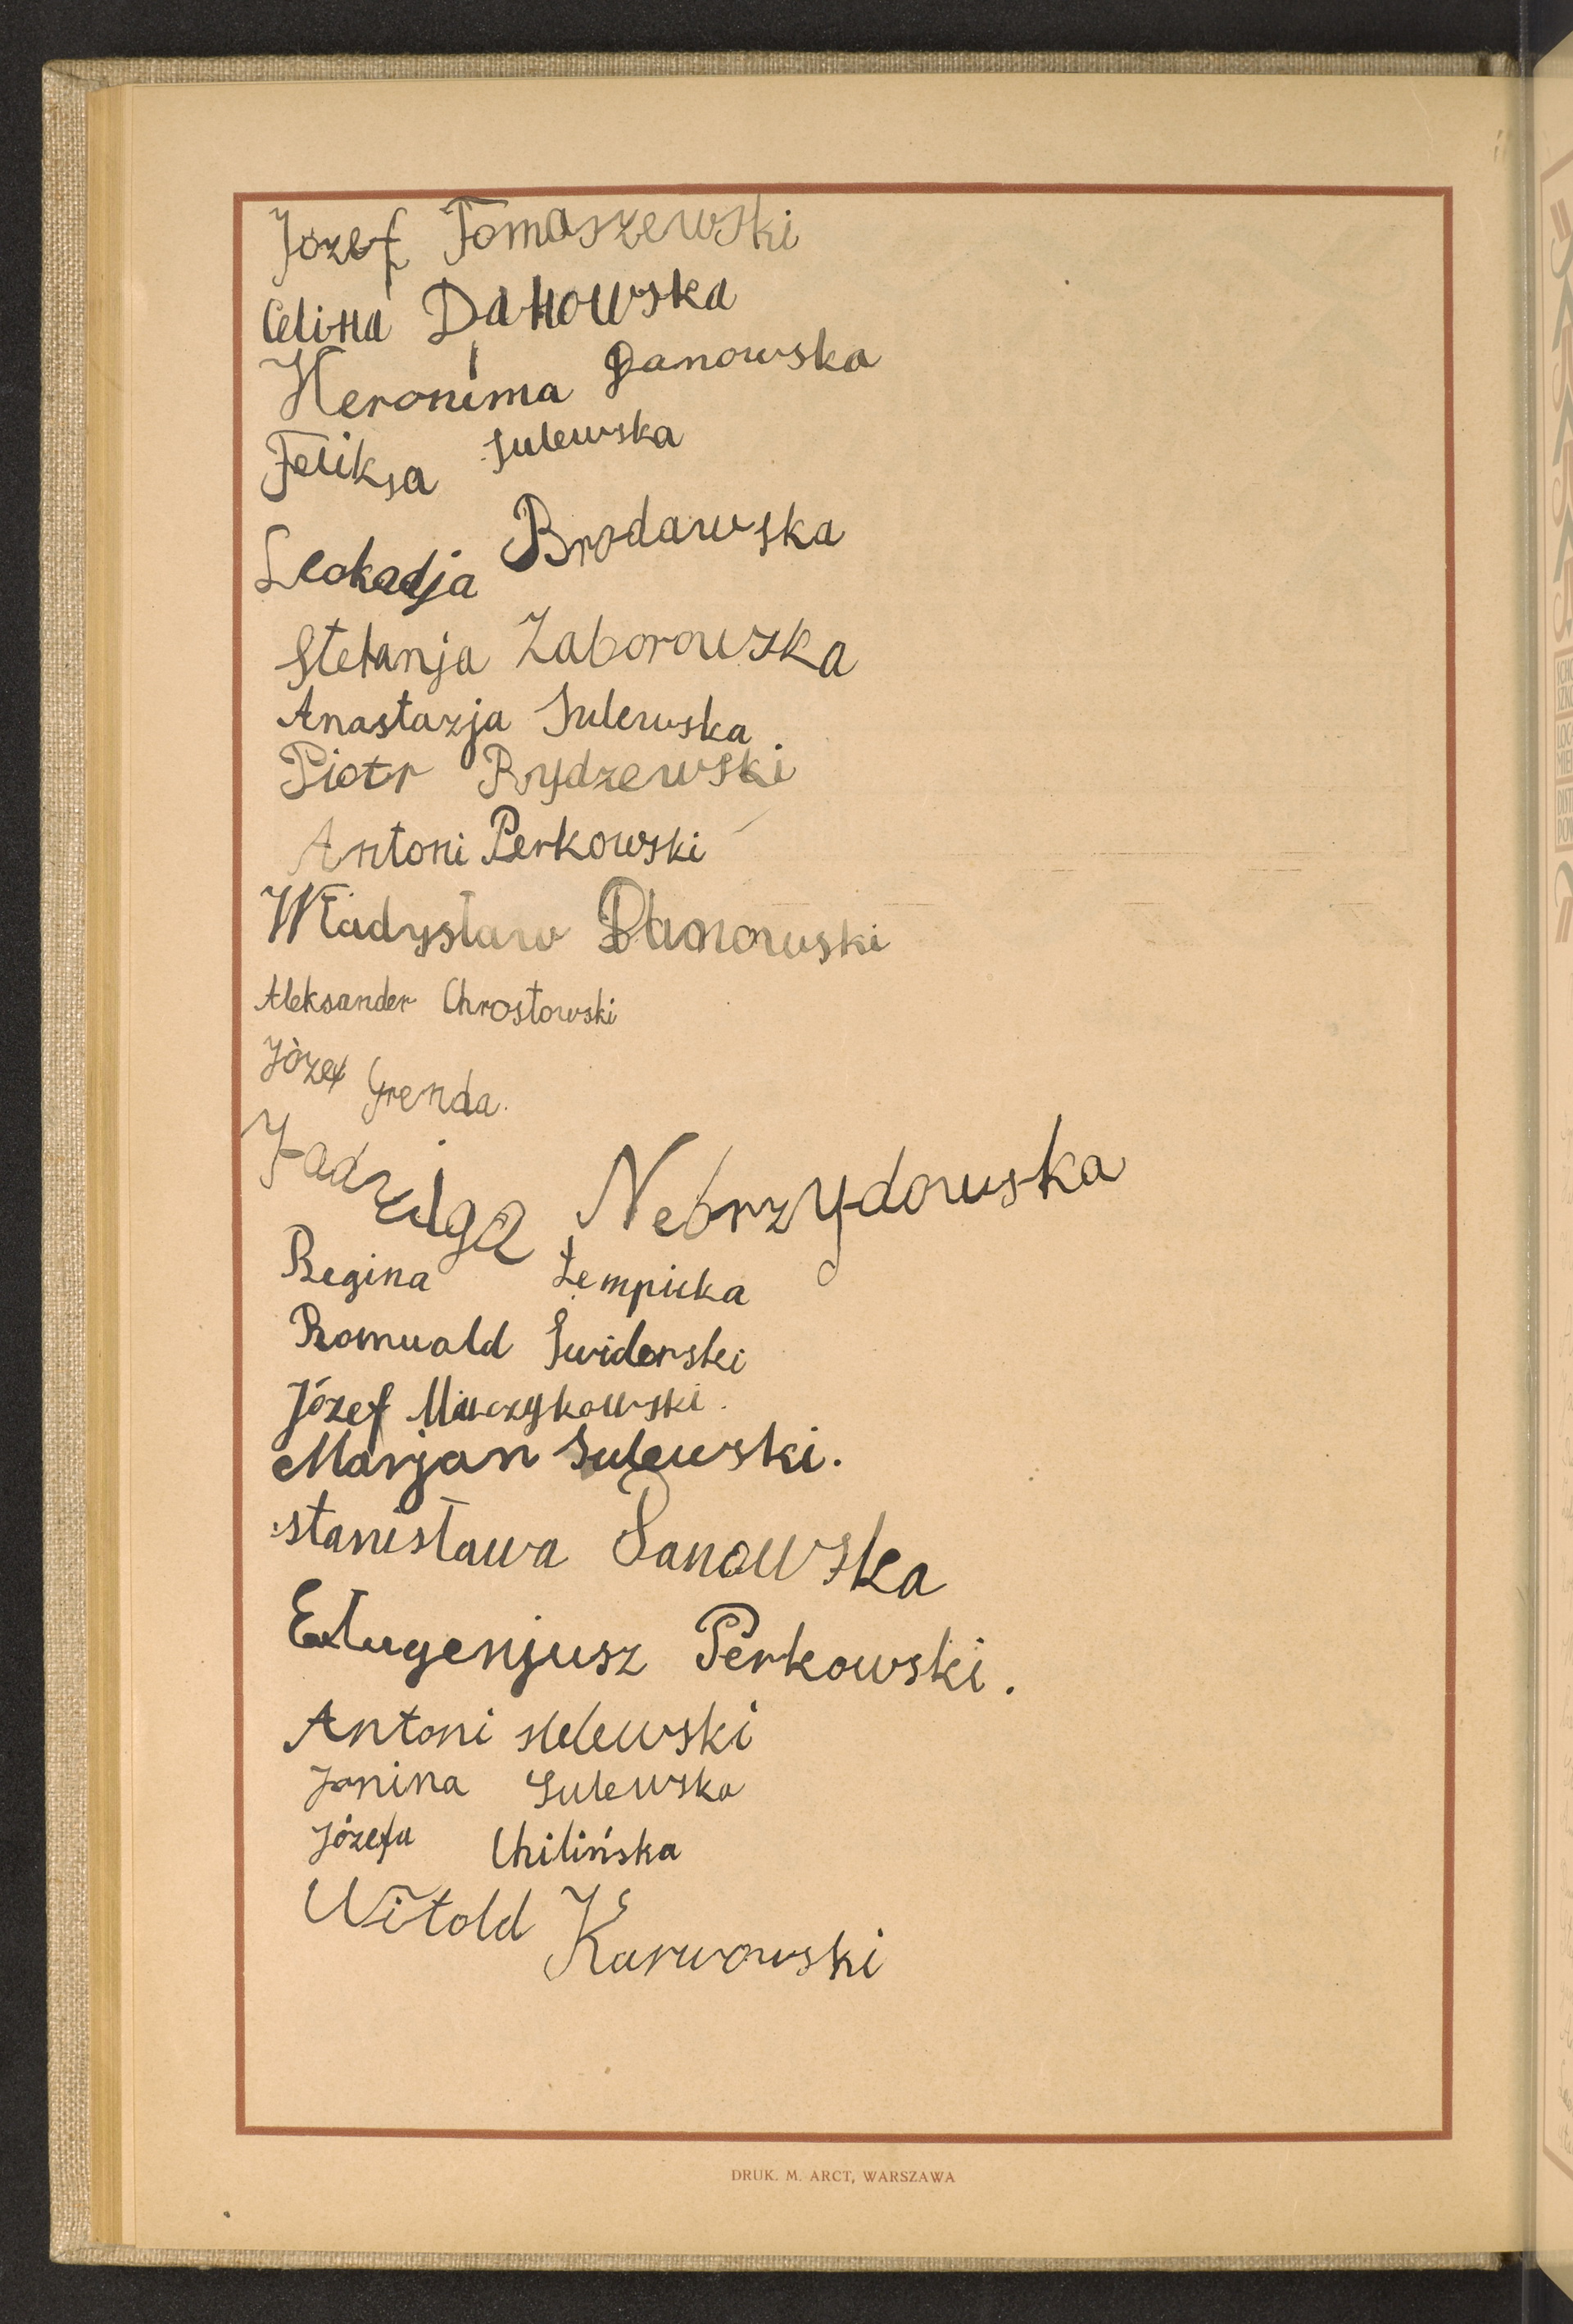 Józef Tomaszewski
Celina Danowska
Heronima Danowska
Feliksa Sulewska
Leokadja Brodawska
Stefanja Zaborowska
Anastazja Sulewska
Piotr Rydzewski
Antoni Perkowski
Władysław Danowski
Aleksander Chrostowski
Józef Grenda.
Jadwiga Nebrzydowska
Regina Łempicka
Romuald Świderski
Józef
Marjan Sulewski.
Stanisława Danowska
Eugenjusz Perkowski.
Antoni Sulewski
Janina Sulewska
Józefa Chilińska
Witold Karwowski
DRUK. M. ARCT, WARSZAWA